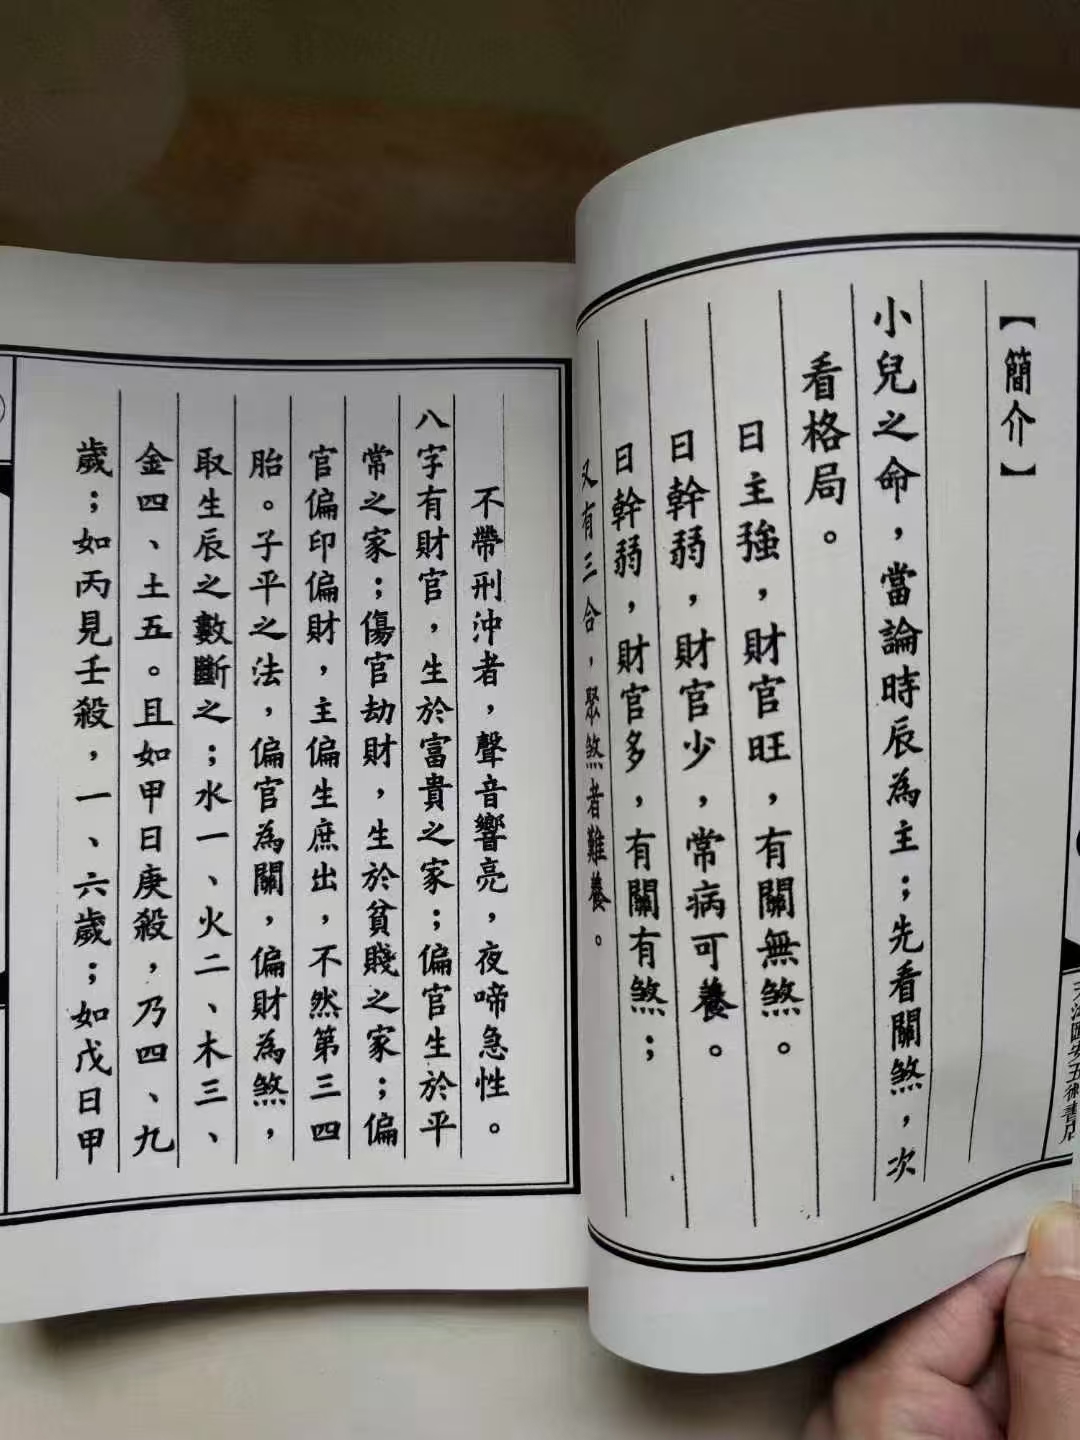 【簡介】
小兒之命，當論時辰為主；先看關煞，次
看格局。
日主強，財官旺，有關無煞。
日幹弱，財官少，常病可養。
日幹弱，財官多，有關有煞；
又有三合，聚煞者難養。
不帶刑沖者，聲音響亮，夜啼急性。
八字有財官，生於富貴之家；偏官生於平
常之家；傷官劫財，生於貧賤之家；偏
官偏印偏財，主偏生庶出，不然第三四
胎。子平之法，偏官為關，偏財為煞，
取生辰之數斷之；水一、火二、木三、
金四、土五。且如甲日庚殺，乃四、九
歲；如丙見壬殺，一、六歲；如戊日甲
五術書店